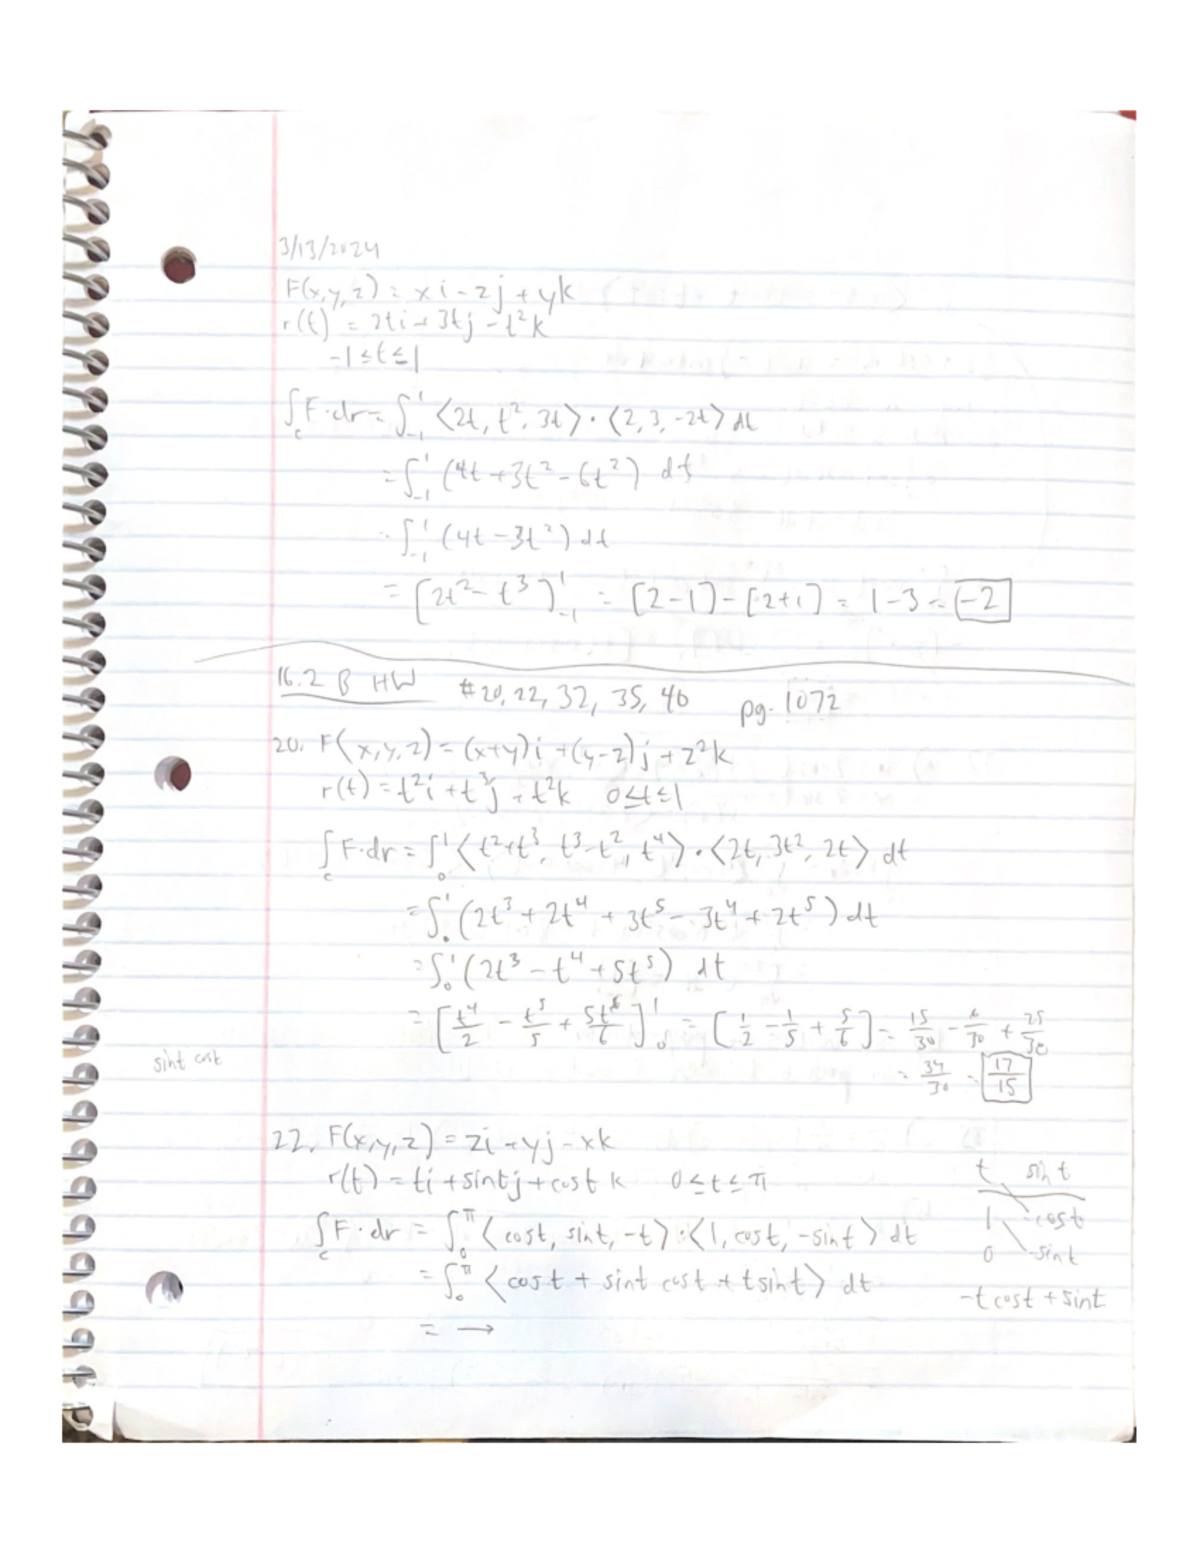 3/13/2024
F(x,y,z) = xi - zj + yk
r(t) = 2ti + 3tj - t²k
-1 ≤ t ≤ 1
∫_c F·dr = ∫_{-1}^{1} ⟨2t, t², 3t⟩ · ⟨2, 3, -2t⟩ dt
= ∫_{-1}^{1} (4t + 3t² - 6t²) dt
= ∫_{-1}^{1} (4t - 3t²) dt
= [2t² - t³]_{-1}^{1} = [2-1] - [2+1] = 1-3 = -2
16.2 B HW # 20, 22, 32, 35, 40 pg. 1072
20. F(x,y,z) = (x+y)i + (y-z)j + z²k
r(t) = t²i + t³j + t²k 0 ≤ t ≤ 1
∫_c F·dr = ∫_0^1 ⟨t²+t³, t³-t², t⁴⟩ · ⟨2t, 3t², 2t⟩ dt
= ∫_0^1 (2t³ + 2t⁴ + 3t⁵ - 3t⁴ + 2t⁵) dt
= ∫_0^1 (2t³ - t⁴ + 5t⁵) dt
= [t⁴/2 - t⁵/5 + 5t⁶/6]_0^1 = [1/2 - 1/5 + 5/6] = 15/30 - 6/30 + 25/30
sint cost
= 34/30 = 17/15
22. F(x,y,z) = zi + yj - xk
r(t) = ti + sintj + cost k 0 ≤ t ≤ π
t sin t
∫_c F·dr = ∫_0^π ⟨cost, sint, -t⟩ · ⟨1, cost, -sint⟩ dt
1 -cost
0 -sint
= ∫_0^π ⟨cost + sint cost + tsint⟩ dt
-tcost + sint
= →